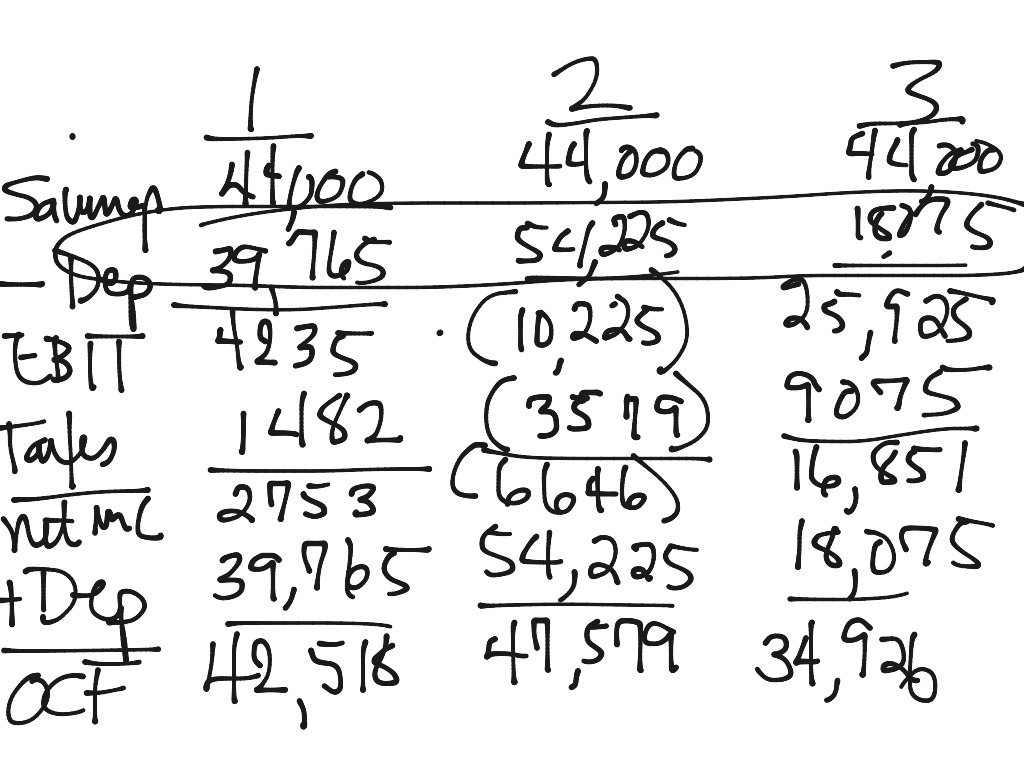 1 2 3
Savings 44,000 44,000 44,000
- Dep 39,765 54,225 18,075
EBIT 4235 (10,225) 25,925
Taxes 1482 (3579) 9075
net inc 2753 (6646) 16,851
+ Dep 39,765 54,225 18,075
OCF 42,518 47,579 34,926